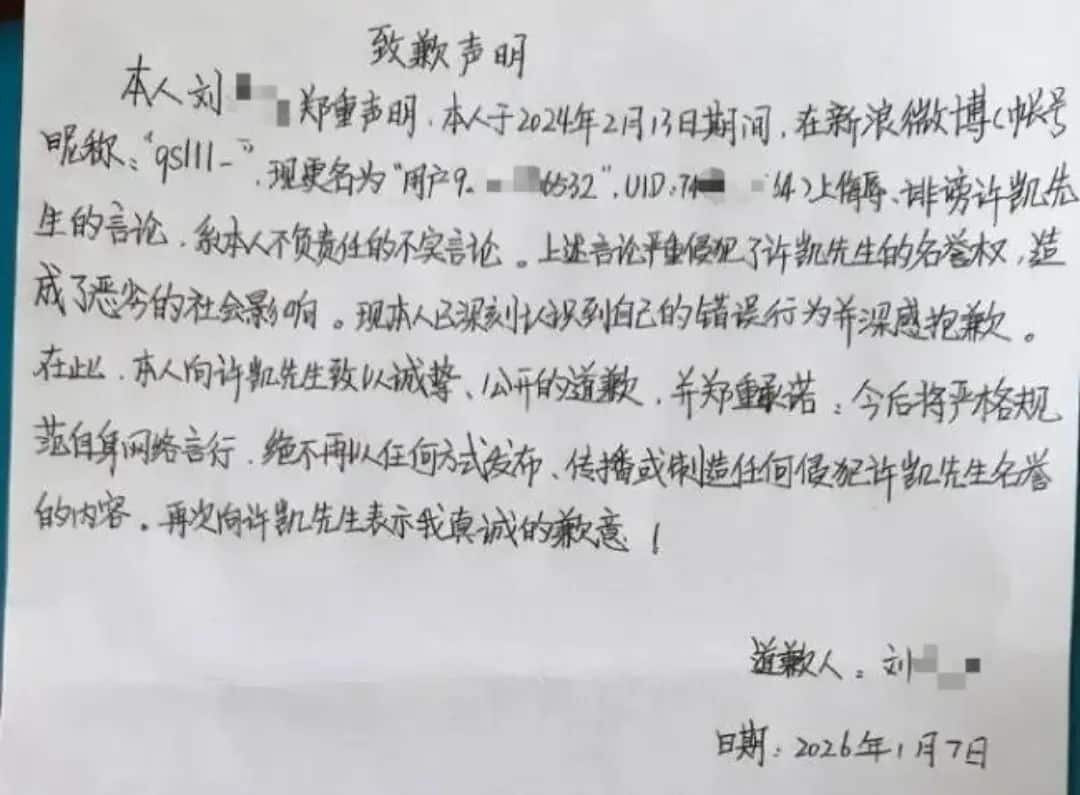 致歉声明
本人刘 郑重声明,本人于2024年2月13日期间,在新浪微博(帐号
昵称:“qs111-”,现更名为“用户9 6532”,UID:74 54)上侮辱、诽谤许凯先
生的言论,系本人不负责任的不实言论。上述言论严重侵犯了许凯先生的名誉权,造
成了恶劣的社会影响。现本人已深刻认识到自己的错误行为并深感抱歉。
在此,本人向许凯先生致以诚挚、公开的道歉,并郑重承诺:今后将严格规
范自身网络言行,绝不再以任何方式发布、传播或制造任何侵犯许凯先生名誉
的内容。再次向许凯先生表示我真诚的歉意!
道歉人:刘
日期:2026年1月7日